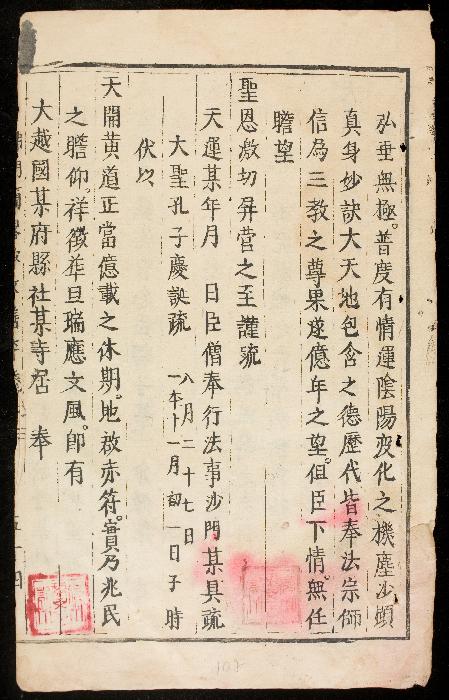 弘垂無極。普度有情運陰陽变化之機塵沙顕
真身妙訣大天地包含之德歷代皆奉法宗師
信為三教之尊果遂億年之望。但臣下情。無任
瞻望
聖恩激切屏营之至謹疏
天運某年月 日臣僧奉行法事沙門某具疏
大聖孔子慶誕疏 八月二十七日
一本十一月初一日子時
伏以
天開黄道正當億載之休期。地啟赤符。實乃兆民
之瞻仰。祥徵華旦瑞應文風。即有
大越國某府縣社某寺居 奉
107